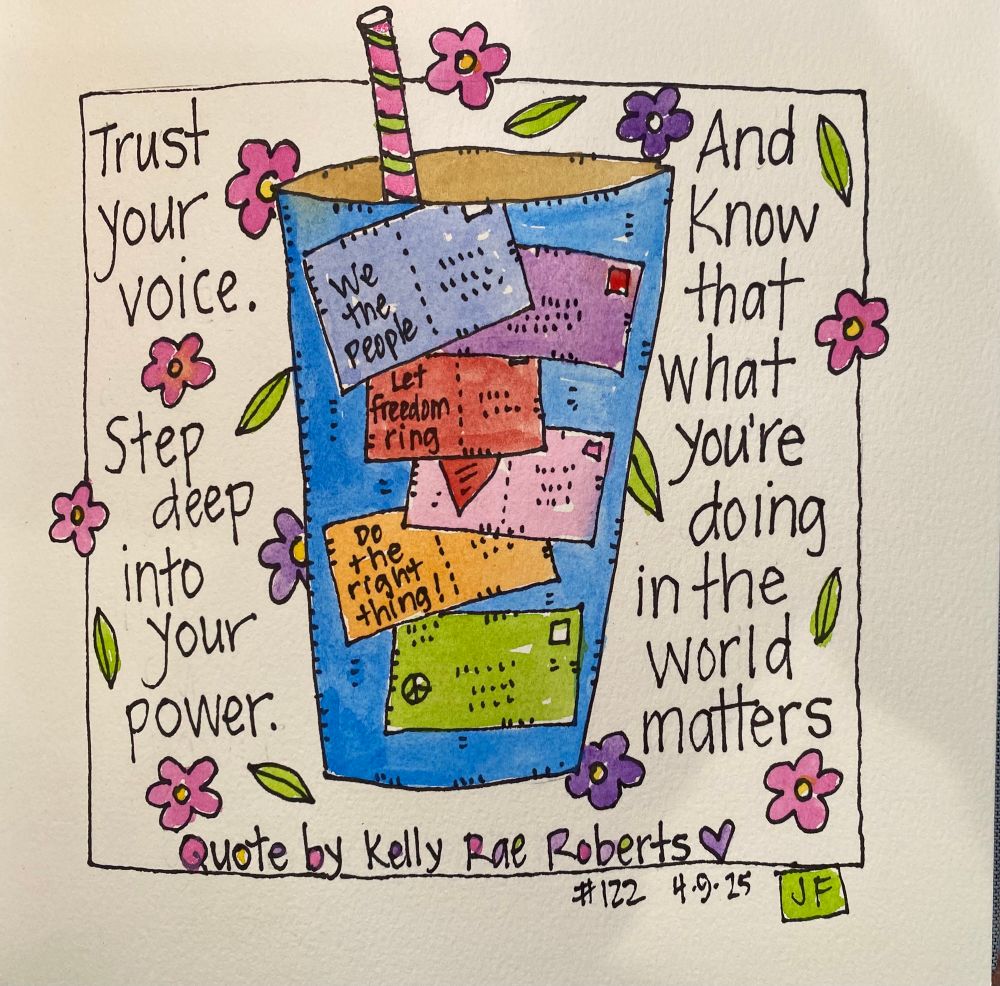 Trust
your
voice.
Step
deep
into
your
power.
And
Know
that
what
you're
doing
in the
world
matters
We
the
People
Let
freedom
ring
Do
the
right
thing!
Quote by Kelly Rae Roberts
#122 4.9.25
JF